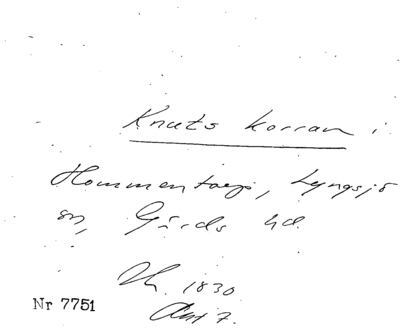 Knuts korran i
Hommentorp, Lyngsjö
sn, Gärds hd.
1830
Nr 7751